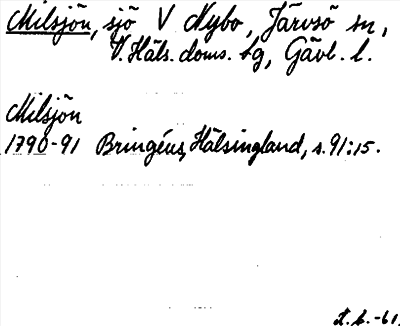 Milsjön, sjö V Nybo, Järvsö sn,
V. Häls. doms. tg, Gävl. l.
Milsjön
1790-91 Bringéus, Hälsingland, s. 91:15.